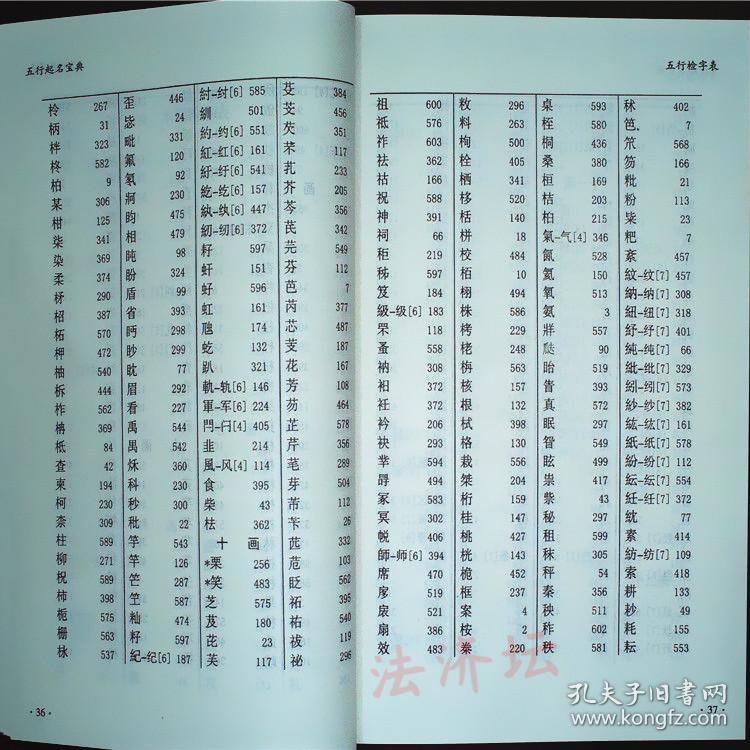 五行起名宝典
柃 267
柄 31
柈 323
柊 582
柏 9
某 306
柑 125
柒 341
染 369
柔 374
柕 290
柖 387
柘 570
柙 472
柚 540
柝 444
柞 562
柟 309
柢 84
查 42
柬 194
柯 230
柰 309
柱 589
柳 271
柷 589
柿 398
栀 575
栅 560
柍 537
歪 446
毖 24
毗 331
氟 120
氡 92
牁 230
昀 475
相 479
盹 98
盼 324
盾 99
省 393
眄 298
眇 299
眈 77
眉 292
看 227
禹 544
禺 542
秌 360
科 230
秒 300
秕 22
竽 543
竿 126
笀 287
竺 587
籼 474
籽 597
纪-纪[6] 187
紂-纣[6] 585
紃 501
約-约[6] 551
紅-红[6] 161
紆-纡[6] 541
紇-纥[6] 157
紈-纨[6] 447
紉-纫[6] 372
籽 597
虷 151
虸 596
虹 161
虺 174
虼 132
趴 321
軌-轨[6] 146
軍-军[6] 224
閂-闩[4] 405
韭 214
風-风[4] 114
食 395
柴 43
柼 362
十画
*栗 256
*笑 483
芝 575
芨 180
芘 23
芙 117
芟 384
芰 456
芡 351
芣 117
芤 233
芥 205
芩 356
芪 342
芫 549
芬 112
芭 7
芮 377
芯 487
芰 187
花 167
芳 108
芴 464
芷 578
芹 356
芼 289
芽 504
芾 112
苄 26
苉 332
苊 103
眨 562
祏 395
祐 540
祓 119
祕 296
·36·
五行检字表
祖 600
祗 576
祚 603
祛 362
祜 166
祝 588
神 391
祠 66
秬 219
秭 597
笈 184
級-级[6] 183
罘 118
蚤 558
衲 308
衵 372
衽 372
衿 206
袂 293
芈 594
冔 484
冢 585
冥 302
帨 406
師-师[6] 394
席 470
庪 519
扆 521
扇 386
效 483
敉 296
料 263
栒 500
栓 405
栖 341
栘 520
栝 140
栟 18
校 484
栢 10
栩 494
株 586
栲 229
栳 248
栴 563
核 157
根 132
栻 398
栿 429
格 130
栽 556
桀 204
桁 159
桂 147
桃 427
桄 143
桅 452
框 237
案 4
桉 2
桊 220
桌 593
桎 580
桐 436
桑 380
桓 169
桔 203
桕 215
氣-气[4] 346
氤 528
氦 150
氧 513
氨 3
牂 557
瓞 90
眙 519
眚 393
真 572
眠 297
眢 549
眩 499
祟 417
祡 43
秘 297
租 599
秣 305
秤 54
秦 356
秧 511
秨 602
秩 581
秫 402
笆 7
笊 568
笏 166
粃 21
粉 113
柴 23
粑 7
紊 457
紋-纹[7] 457
納-纳[7] 308
紐-纽[7] 318
紓-纾[7] 401
純-纯[7] 66
紕-纰[7] 329
紖-纼[7] 573
紗-纱[7] 382
紘-纮[7] 161
紙-纸[7] 578
紛-纷[7] 112
紜-纭[7] 554
紝-纴[7] 372
紞 77
素 414
紡-纺[7] 109
索 418
耕 133
耖 49
耗 155
耘 553
·37·
法济坛
孔夫子旧书网
www.kongfz.com